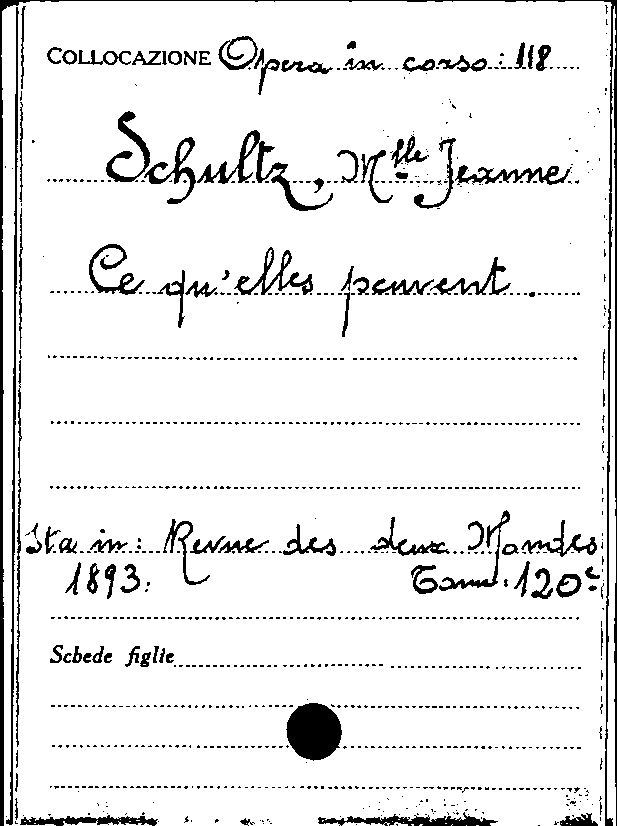 COLLOCAZIONE Opera in corso: 118
Schultz, Mlle Jeanne
Ce qu'elles peuvent.
Sta in: Revue des deux Mondes
1893. Tome: 120e
Schede figlie